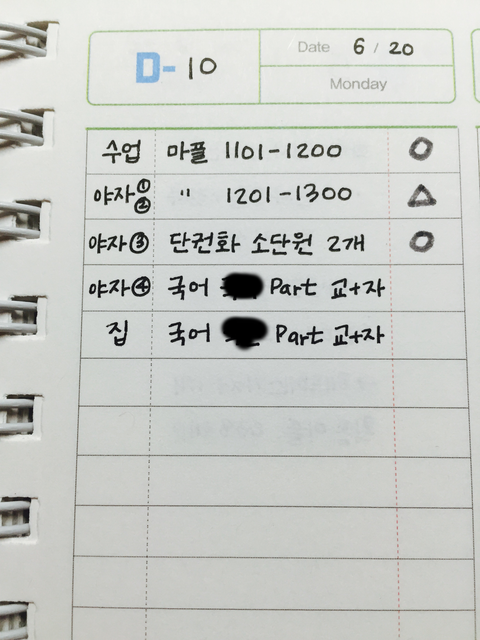 D-10
Date 6 / 20
Monday
수업 마플 1101-1200 O
야자①② " 1201-1300 △
야자③ 단권화 소단원 2개 O
야자④ 국어 Part 교+자
집 국어 Part 교+자